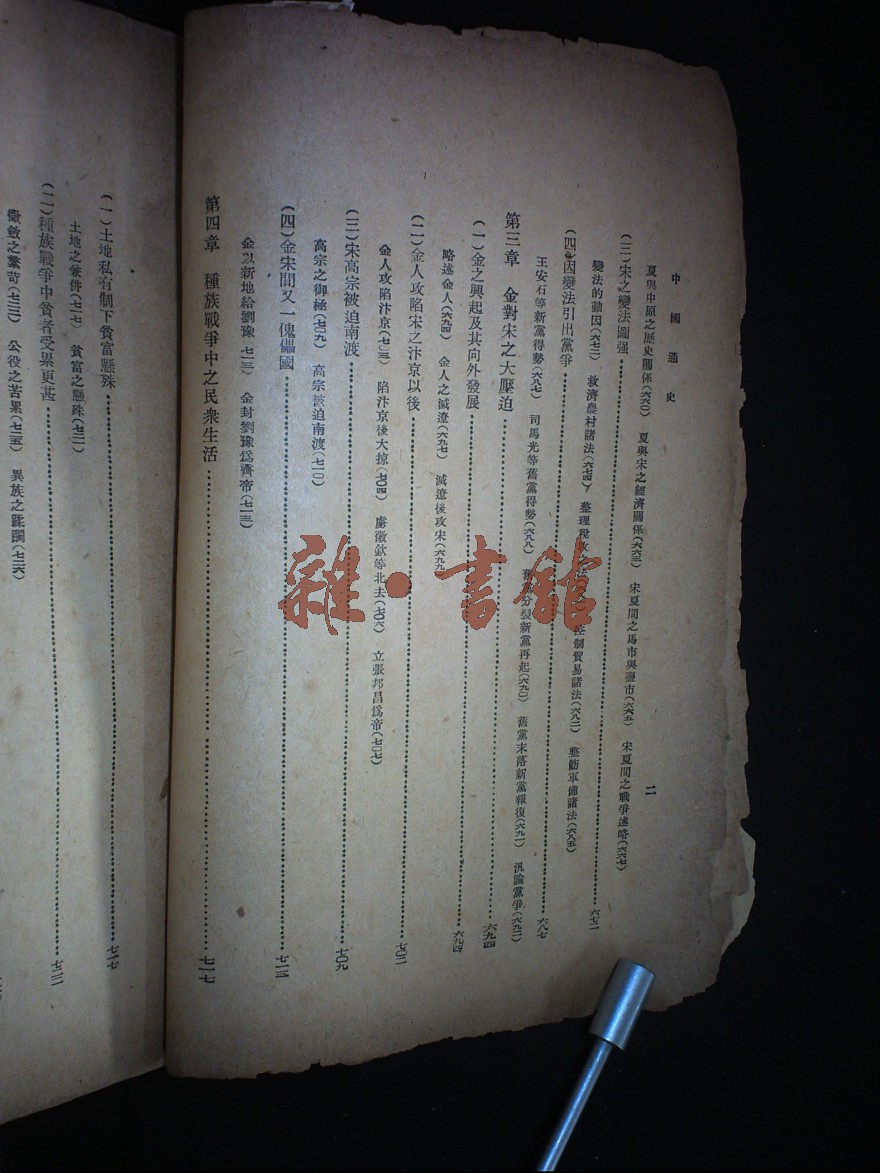 中國通史
二
夏與中原之歷史關係(六六〇) 夏與宋之經濟關係(六六三) 宋夏間之馬市與鹽市(六六五) 宋夏間之戰爭述略(六六七)
(三)宋之變法圖强 六七二
變法的動因(六七二) 救濟農村諸法(六七四) 整理稅收 控制貿易諸法(六八二) 整飭軍備諸法(六八五)
(四)因變法引出黨爭 六八七
王安石等新黨得勢(六八七) 司馬光等舊黨得勢(六八八) 舊黨分裂新黨再起(六九〇) 舊黨末落新黨報復(六九一) 汎論黨爭(六九二)
第三章 金對宋之大壓迫 六九四
(一)金之興起及其向外發展 六九四
略述金人(六九四) 金人之滅遼(六九七) 滅遼後攻宋(六九九
(二)金人攻陷宋之汴京以後 七〇二
金人攻陷汴京(七〇三) 陷汴京後大掠(七〇四) 虜徽欽等北去(七〇六) 立張邦昌爲帝(七〇七)
(三)宋高宗被迫南渡 七〇九
高宗之御極(七〇九) 高宗被迫南渡(七一〇)
(四)金宋間又一傀儡國 七一三
金以新地給劉豫 七一三) 金封劉豫爲齊帝(七一三)
第四章 種族戰爭中之民衆生活 七一七
(一)土地私有制下貧富懸殊 七一七
土地之兼併(七一七) 貧富之懸殊(七二一)
(二)種族戰爭中貧者受累更甚 七二二
徵斂之繁苛(七二二) 公役之苦累(七二五) 異族之蹂躪(七二六)
雜·書館